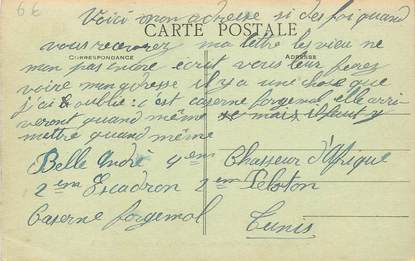 6€
Voici mon adresse si des foi quand
CARTE POSTALE
vous recevrez ma lettre les vieu ne
CORRESPONDANCE ADRESSE
mon pas encore ecrit vous leur ferez
voire mon adresse il y a une chose que
j'ai oublie: c'est caserne forgemol elle arri-
veront quand même mais il faut y
mettre quand même
Belle André 4em Chasseur d'Afrique
2em Escadron 2em Peloton
Caserne forgemol Tunis